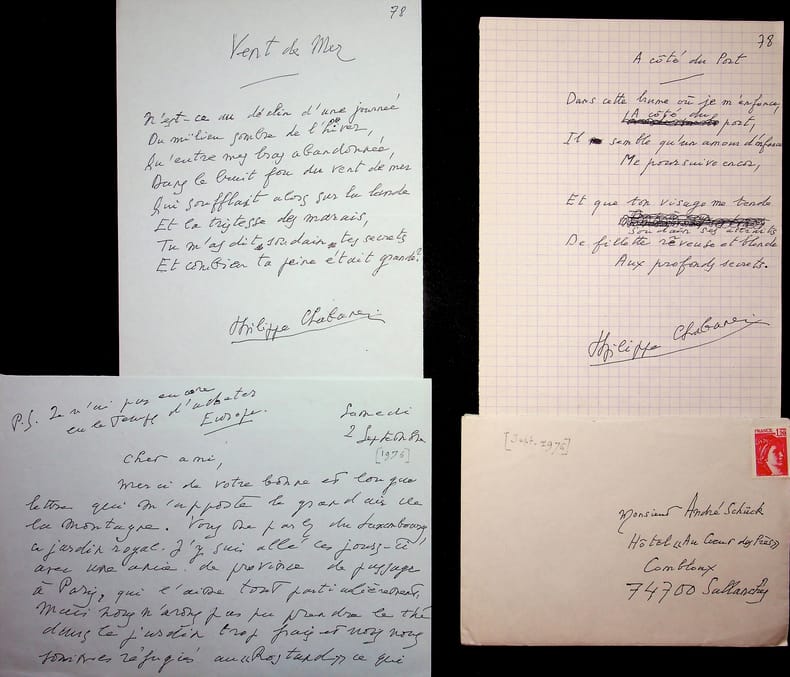 78
Vent de Mer
N'est-ce au déclin d'une journée
Du milieu sombre de l'hiver,
Qu'entre mes bras abandonnée,
Dans le bruit fou du vent de mer
Qui soufflait alors sur la lande
Et la tristesse des marais,
Tu m'as dit soudain tes secrets
Et combien ta peine était grande?
Philippe Chabaneix
78
A côté du Port
Dans cette brume où je m'enfonce,
A côté du port,
Il semble qu'un amour d'enfance
Me poursuive encor,
Et que ton visage me tende
Soudain ses attraits
De fillette rêveuse et blonde
Aux profonds secrets.
Philippe Chabaneix
P.S. Je n'ai pas encore
eu le temps d'acheter
Europe.
Samedi
2 Septembre
[1976]
Cher ami,
Merci de votre bonne et longue
lettre qui m'apporte le grand air de
la montagne. Vous me parlez du Luxembourg,
ce jardin royal. J'y suis allé ces jours-ci
avec une amie de province de passage
à Paris, qui l'aime tout particulièrement.
Mais nous n'avons pas pu prendre le thé
dans le jardin trop frais et nous nous
sommes réfugiés au Rostand, ce qui
[Sept. 1976]
FRANCE 1,20
Monsieur André Schück
Hôtel "Au Coeur des Prés"
Combloux
74700 Sallanches